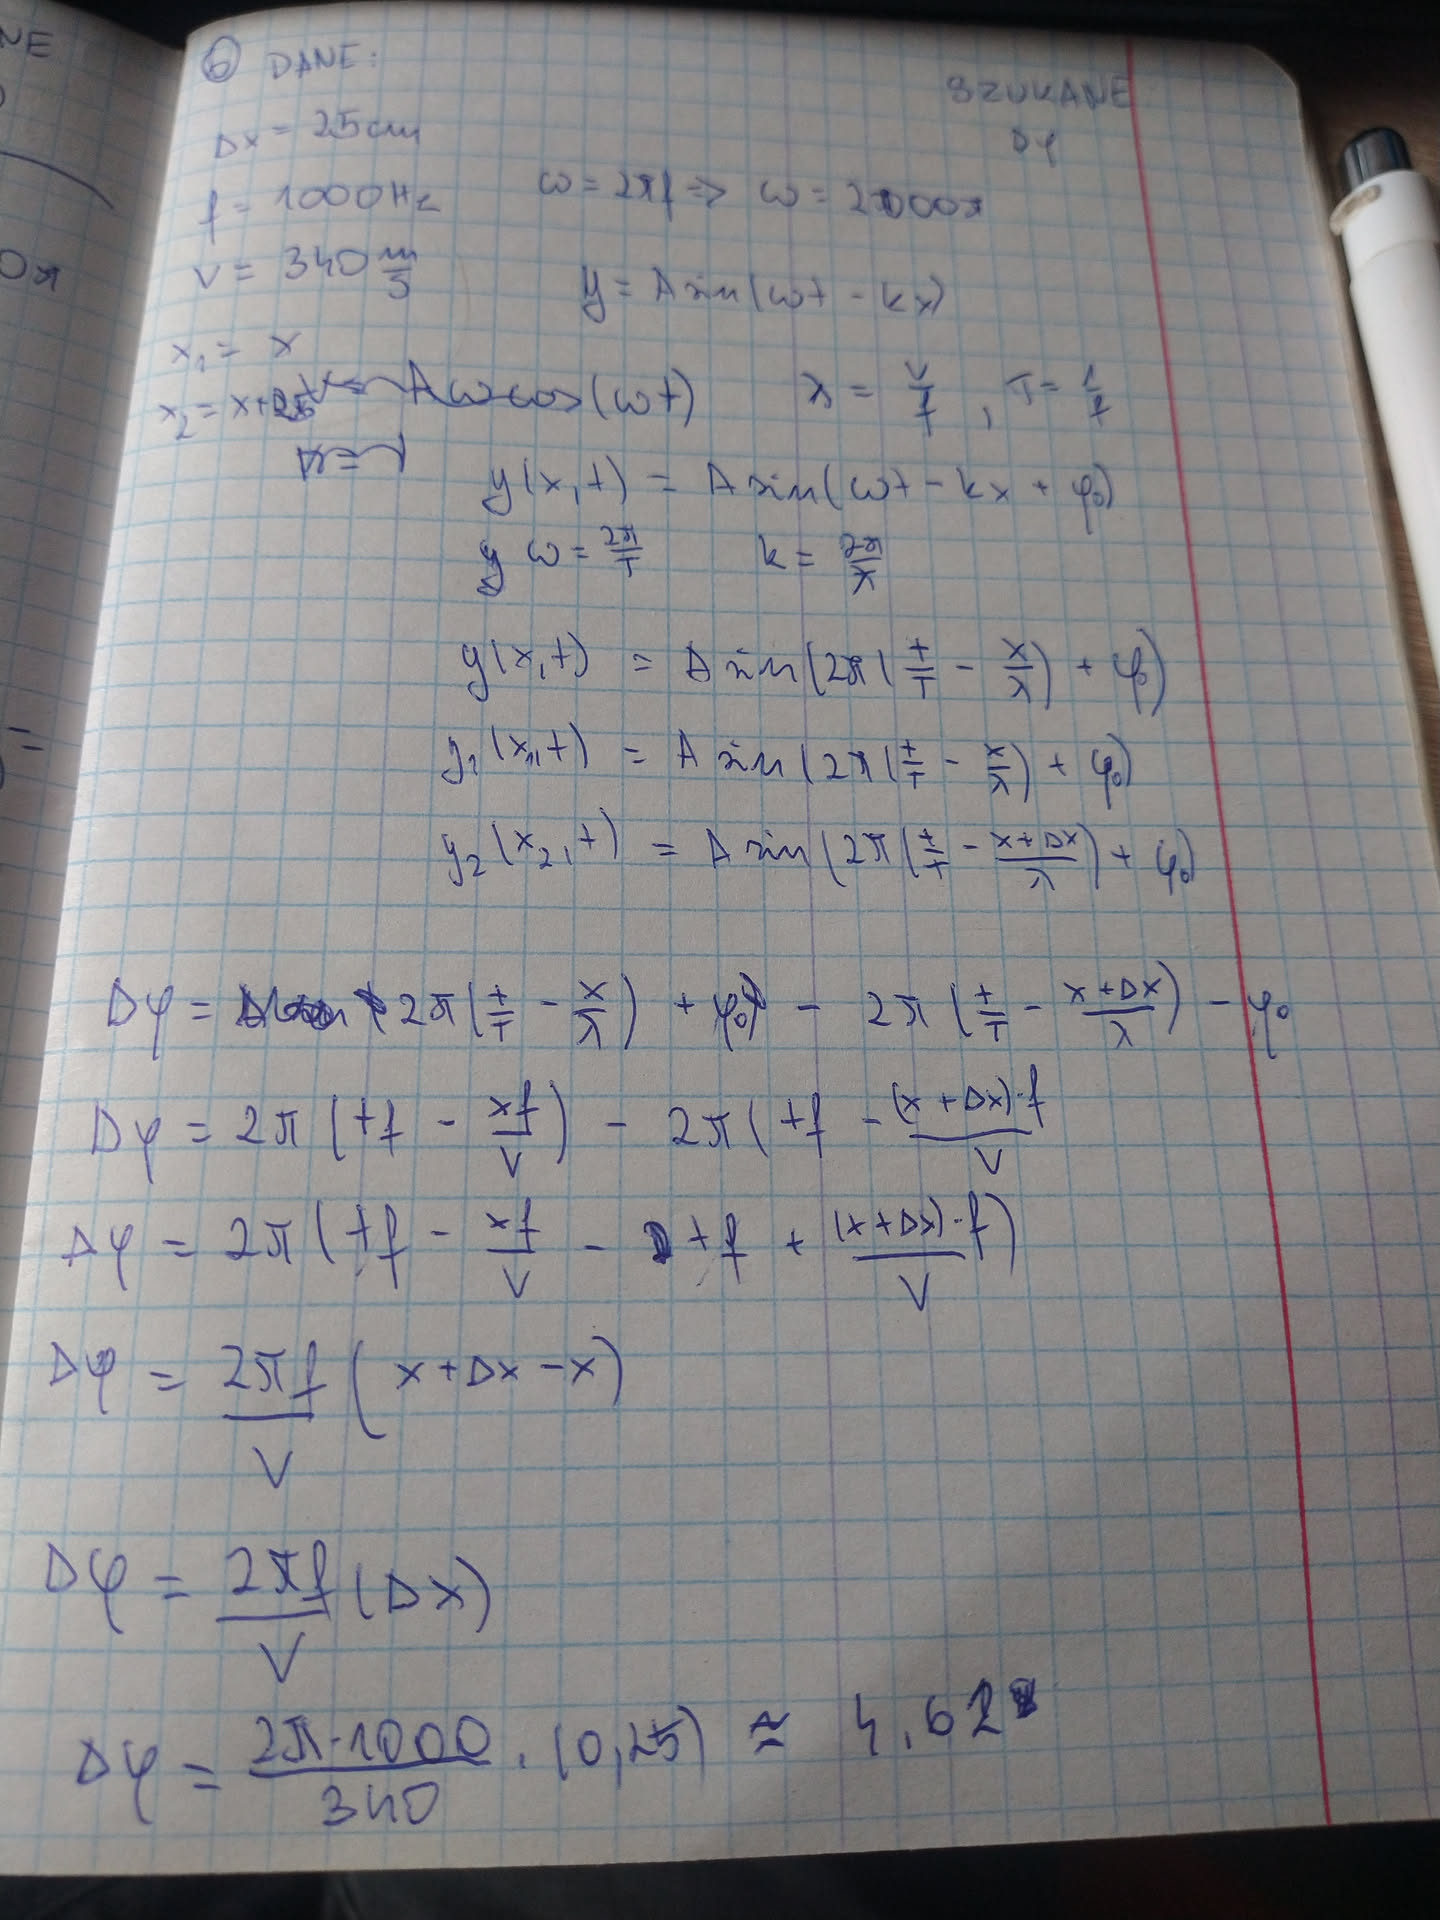 NE
6 DANE:
SZUKANE
Δφ
Δx = 25cm
f = 1000Hz
ω = 2πf => ω = 2000π
v = 340 m/s
y = A sin(ωt - kx)
x₁ = x
x₂ = x+25
Aωcos(ωt)
λ = v/f , T = 1/f
y(x,t) = A sin(ωt - kx + φ₀)
ω = 2π/T k = 2π/λ
y(x,t) = A sin(2π(t/T - x/λ) + φ₀)
y₁(x₁,t) = A sin(2π(t/T - x/λ) + φ₀)
y₂(x₂,t) = A sin(2π(t/T - (x+Δx)/λ) + φ₀)
Δφ = 2π(t/T - x/λ) + φ₀ - 2π(t/T - (x+Δx)/λ) - φ₀
Δφ = 2π(tf - xf/v) - 2π(tf - (x+Δx)·f/v
Δφ = 2π(tf - xf/v - tf + (x+Δx)·f/v)
Δφ = 2πf/v (x+Δx-x)
Δφ = 2πf/v (Δx)
Δφ = 2π·1000/340 · (0,25) ≈ 4,62